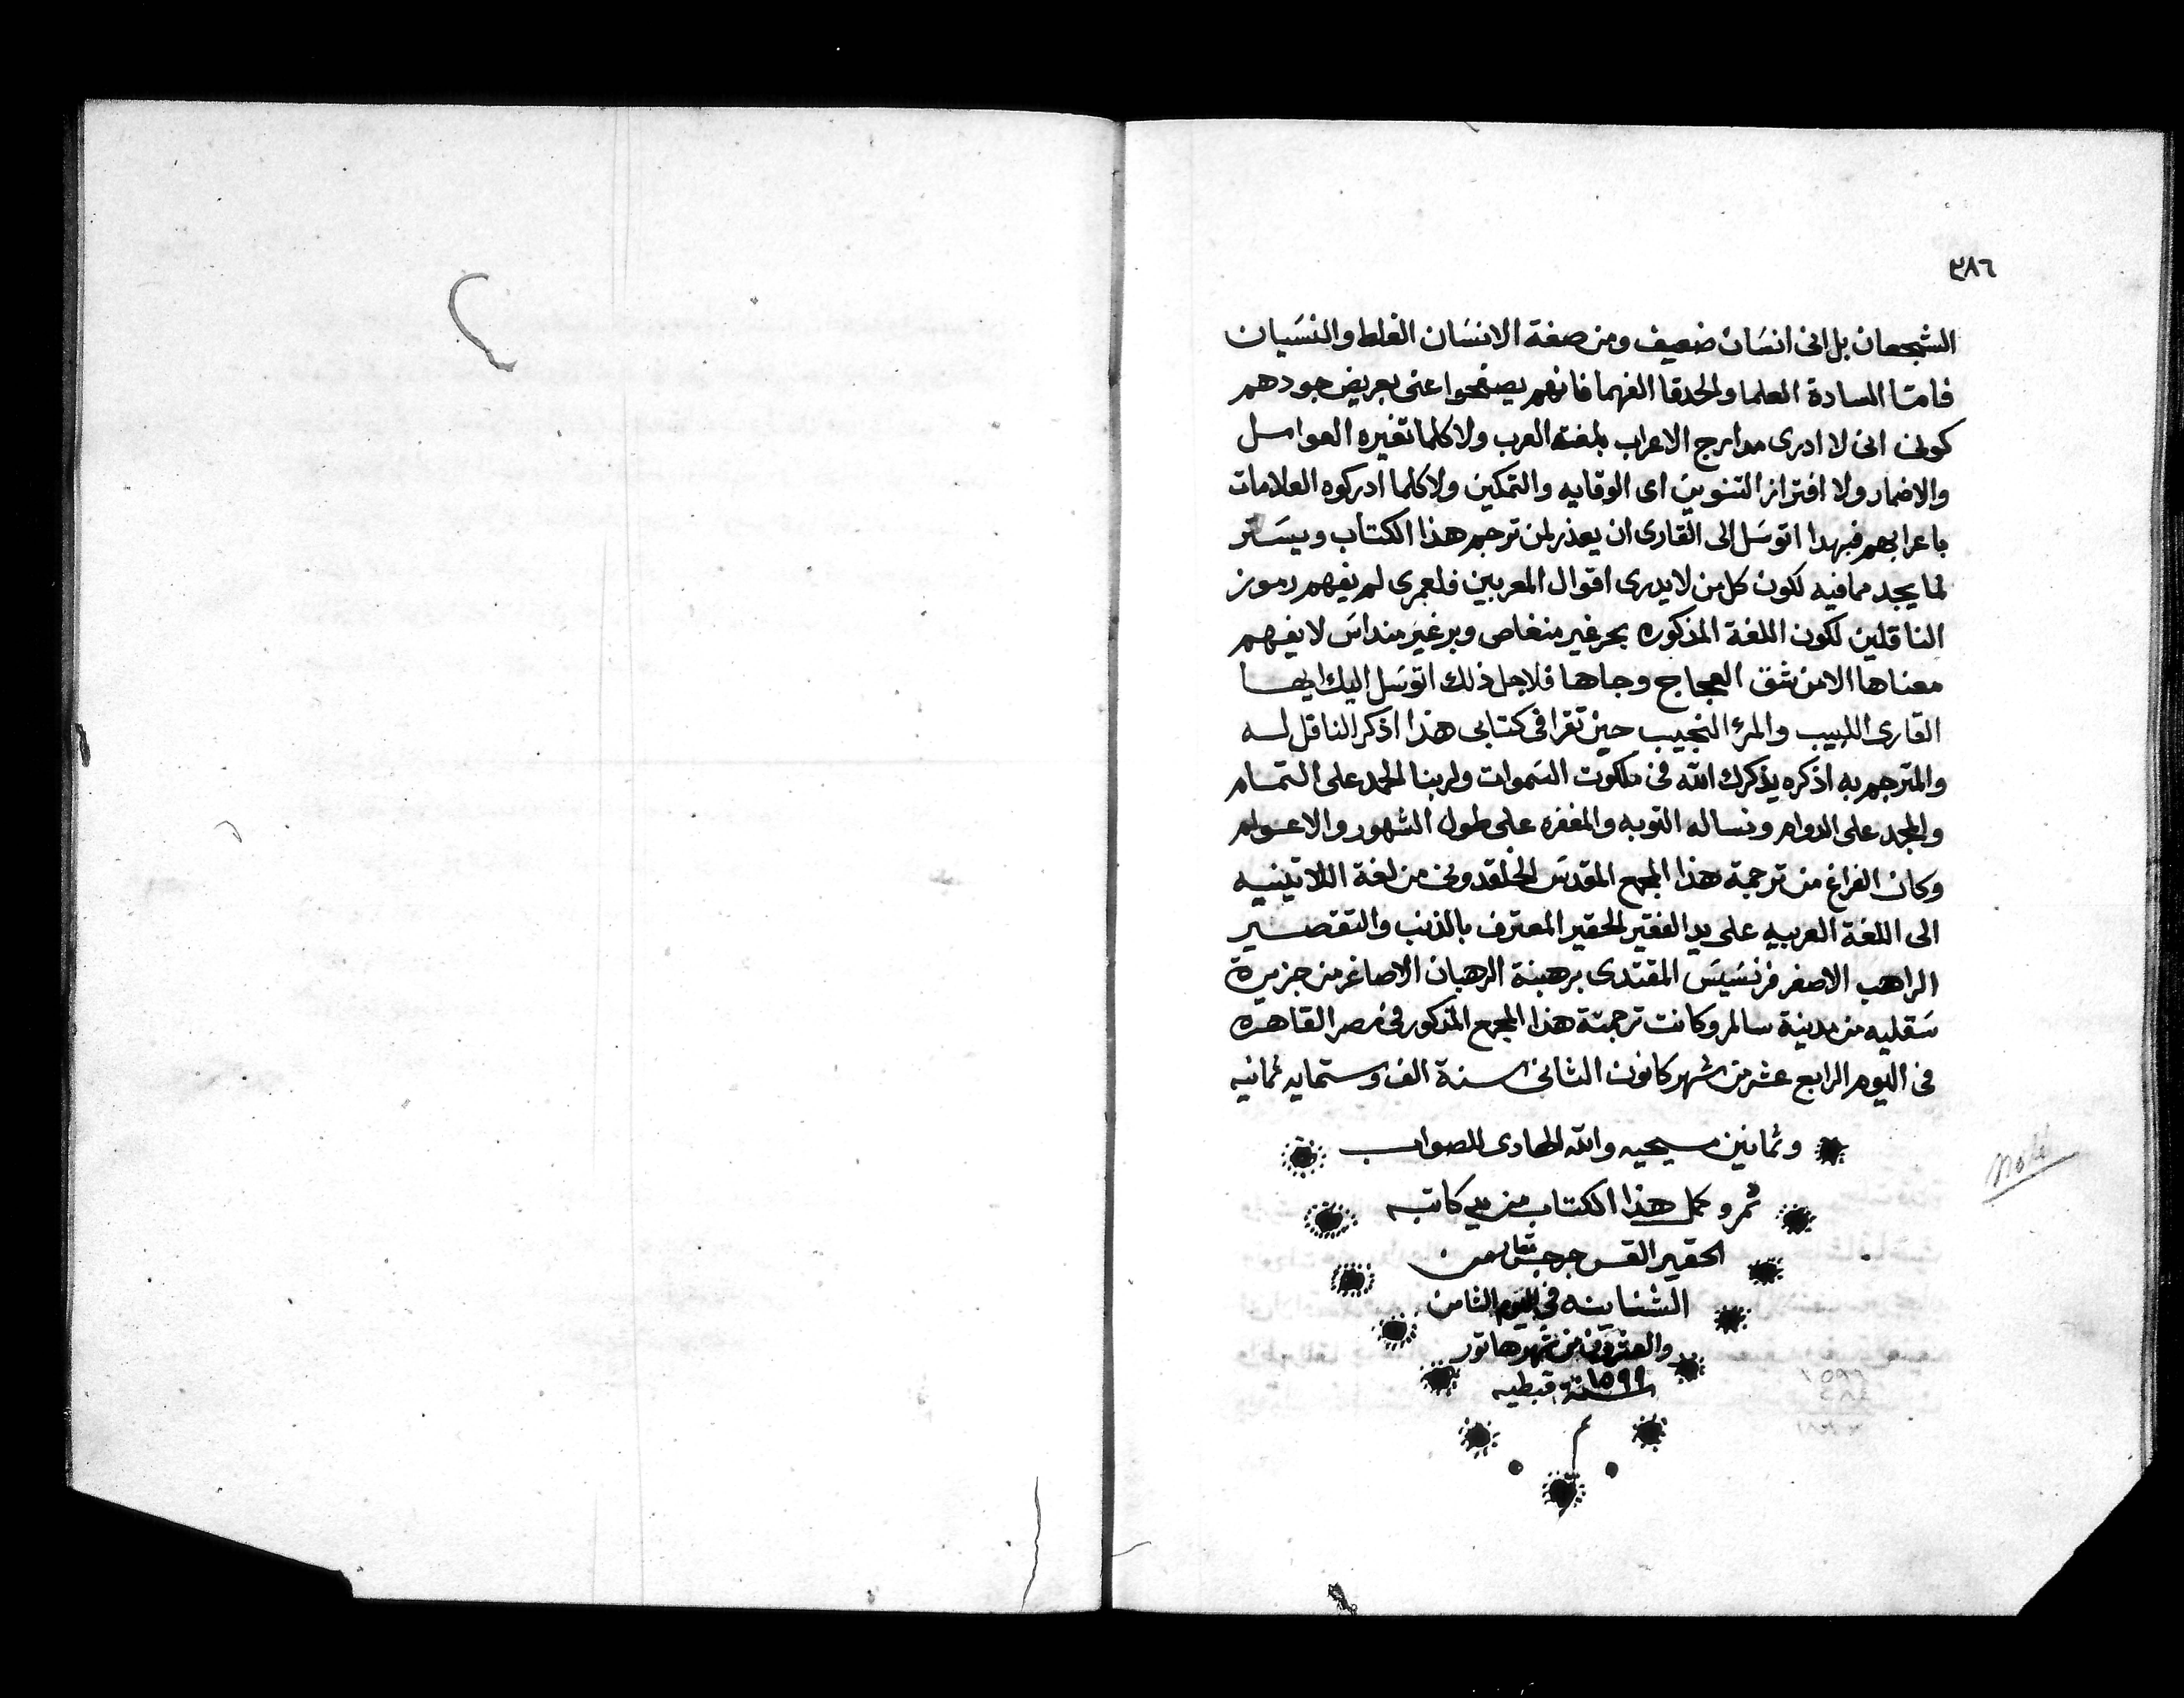 ٣٨٦
الشجعان بل انى انسان ضعيف ومن صفة الانسان الغلط والنسيان
فامتا السادة العلما والحدقا الفهما فانهم يصفحوا عنى بعريض جودهم
كونى انى لا ادرى مدارج الاعراب بلغة العرب ولا كلما تغيره العوامل
والاضمار ولا افتراز التنوين اى الوقايه والتمكين ولا كلما ادركوه العلامات
باعرابهم فبهدا اتوسل الى القارى ان يعذر لمن ترجم هذا الكتاب ويستر
لما يجد مما فيه لكون كل من لا يدرى اقوال المعربين فلعمرى لم يفهم رموز
الناقلين لكون اللغة المذكوره بحر غير منغاص وبر غير منداس لا يفهم
معناها الا من شق العجاج وجاها فلاجل ذلك اتوسل اليك ايها
القارى اللبيب والمرء النجيب حين تقرا فى كتابى هذا اذكر الناقل له
والمترجم به اذكره يذكرك الله فى ملكوت السموات ولربنا الحمد على التمام
والمجد على الدوام ونساله التوبه والمغفره على طول الشهور والاعوام
وكان الفراغ من ترجمة هذا المجمع المقدس الخلقدونى من لغة اللاتينيه
الى اللغة العربيه على يد الفقير الحقير المعترف بالذنب والتقصير
الراهب الاصغر فرنسيس المقتدى برهبنة الرهبان الاصاغر من جزيرة
سقليه من مدينة سالم وكانت ترجمتة هذا المجمع المذكور فى مصر القاهره
فى اليوم الرابع عشر من شهر كانون الثانى سنة الف وستمايه ثمانيه
وثمانين مسيحيه والله الهادى للصواب
تم وكمل هذا الكتاب من يد كاتبه
الحقير القس جرجس من
الشناينه فى اليوم الثامن
والعشرين من شهر هاتور
سنة ١٥٩٩ قبطيه
Note